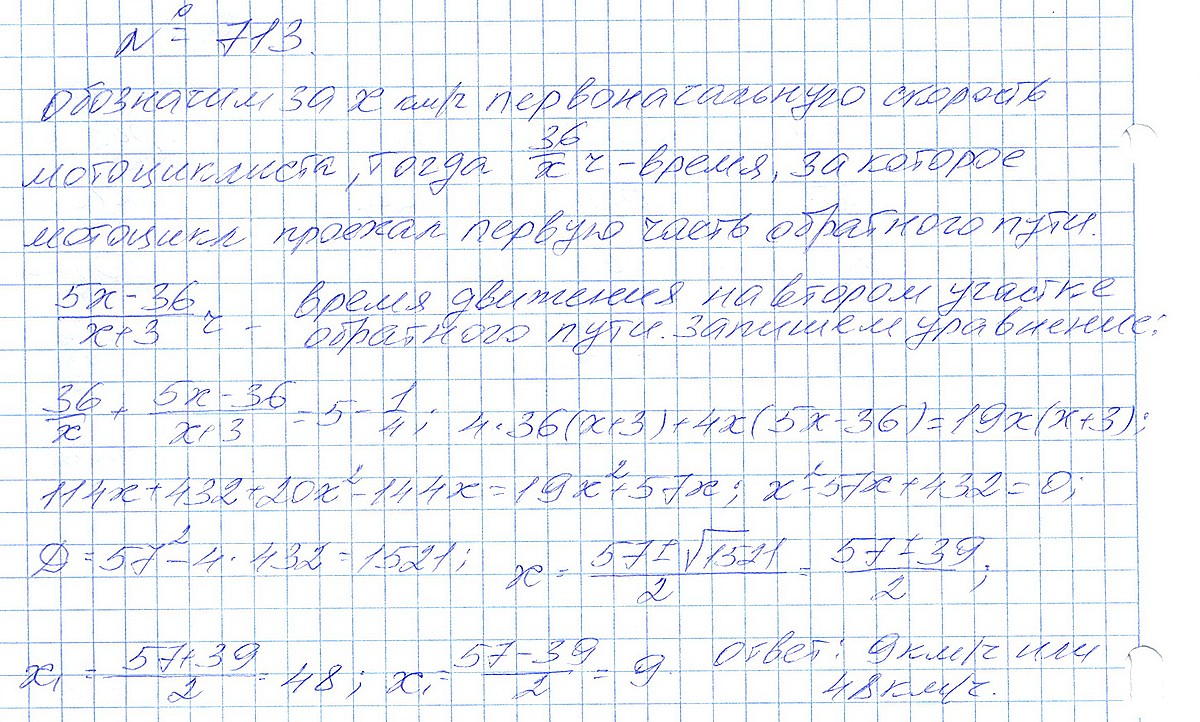 № 713.
обозначим за x км/ч первоначальную скорость
мотоциклиста, тогда 36/x ч - время, за которое
мотоцикл проехал первую часть обратного пути.
(5x-36)/(x+3) ч - время движения на втором участке
обратного пути. запишем уравнение:
36/x + (5x-36)/(x+3) = 5 - 1/4; 4·36(x+3)+4x(5x-36)=19x(x+3);
114x+432+20x²-144x=19x²+57x; x²-57x+432=0;
D=57²-4·432=1521; x = (57±√1521)/2 = (57±39)/2;
x₁ = (57+39)/2 = 48; x₁ = (57-39)/2 = 9. ответ: 9км/ч или
48км/ч.